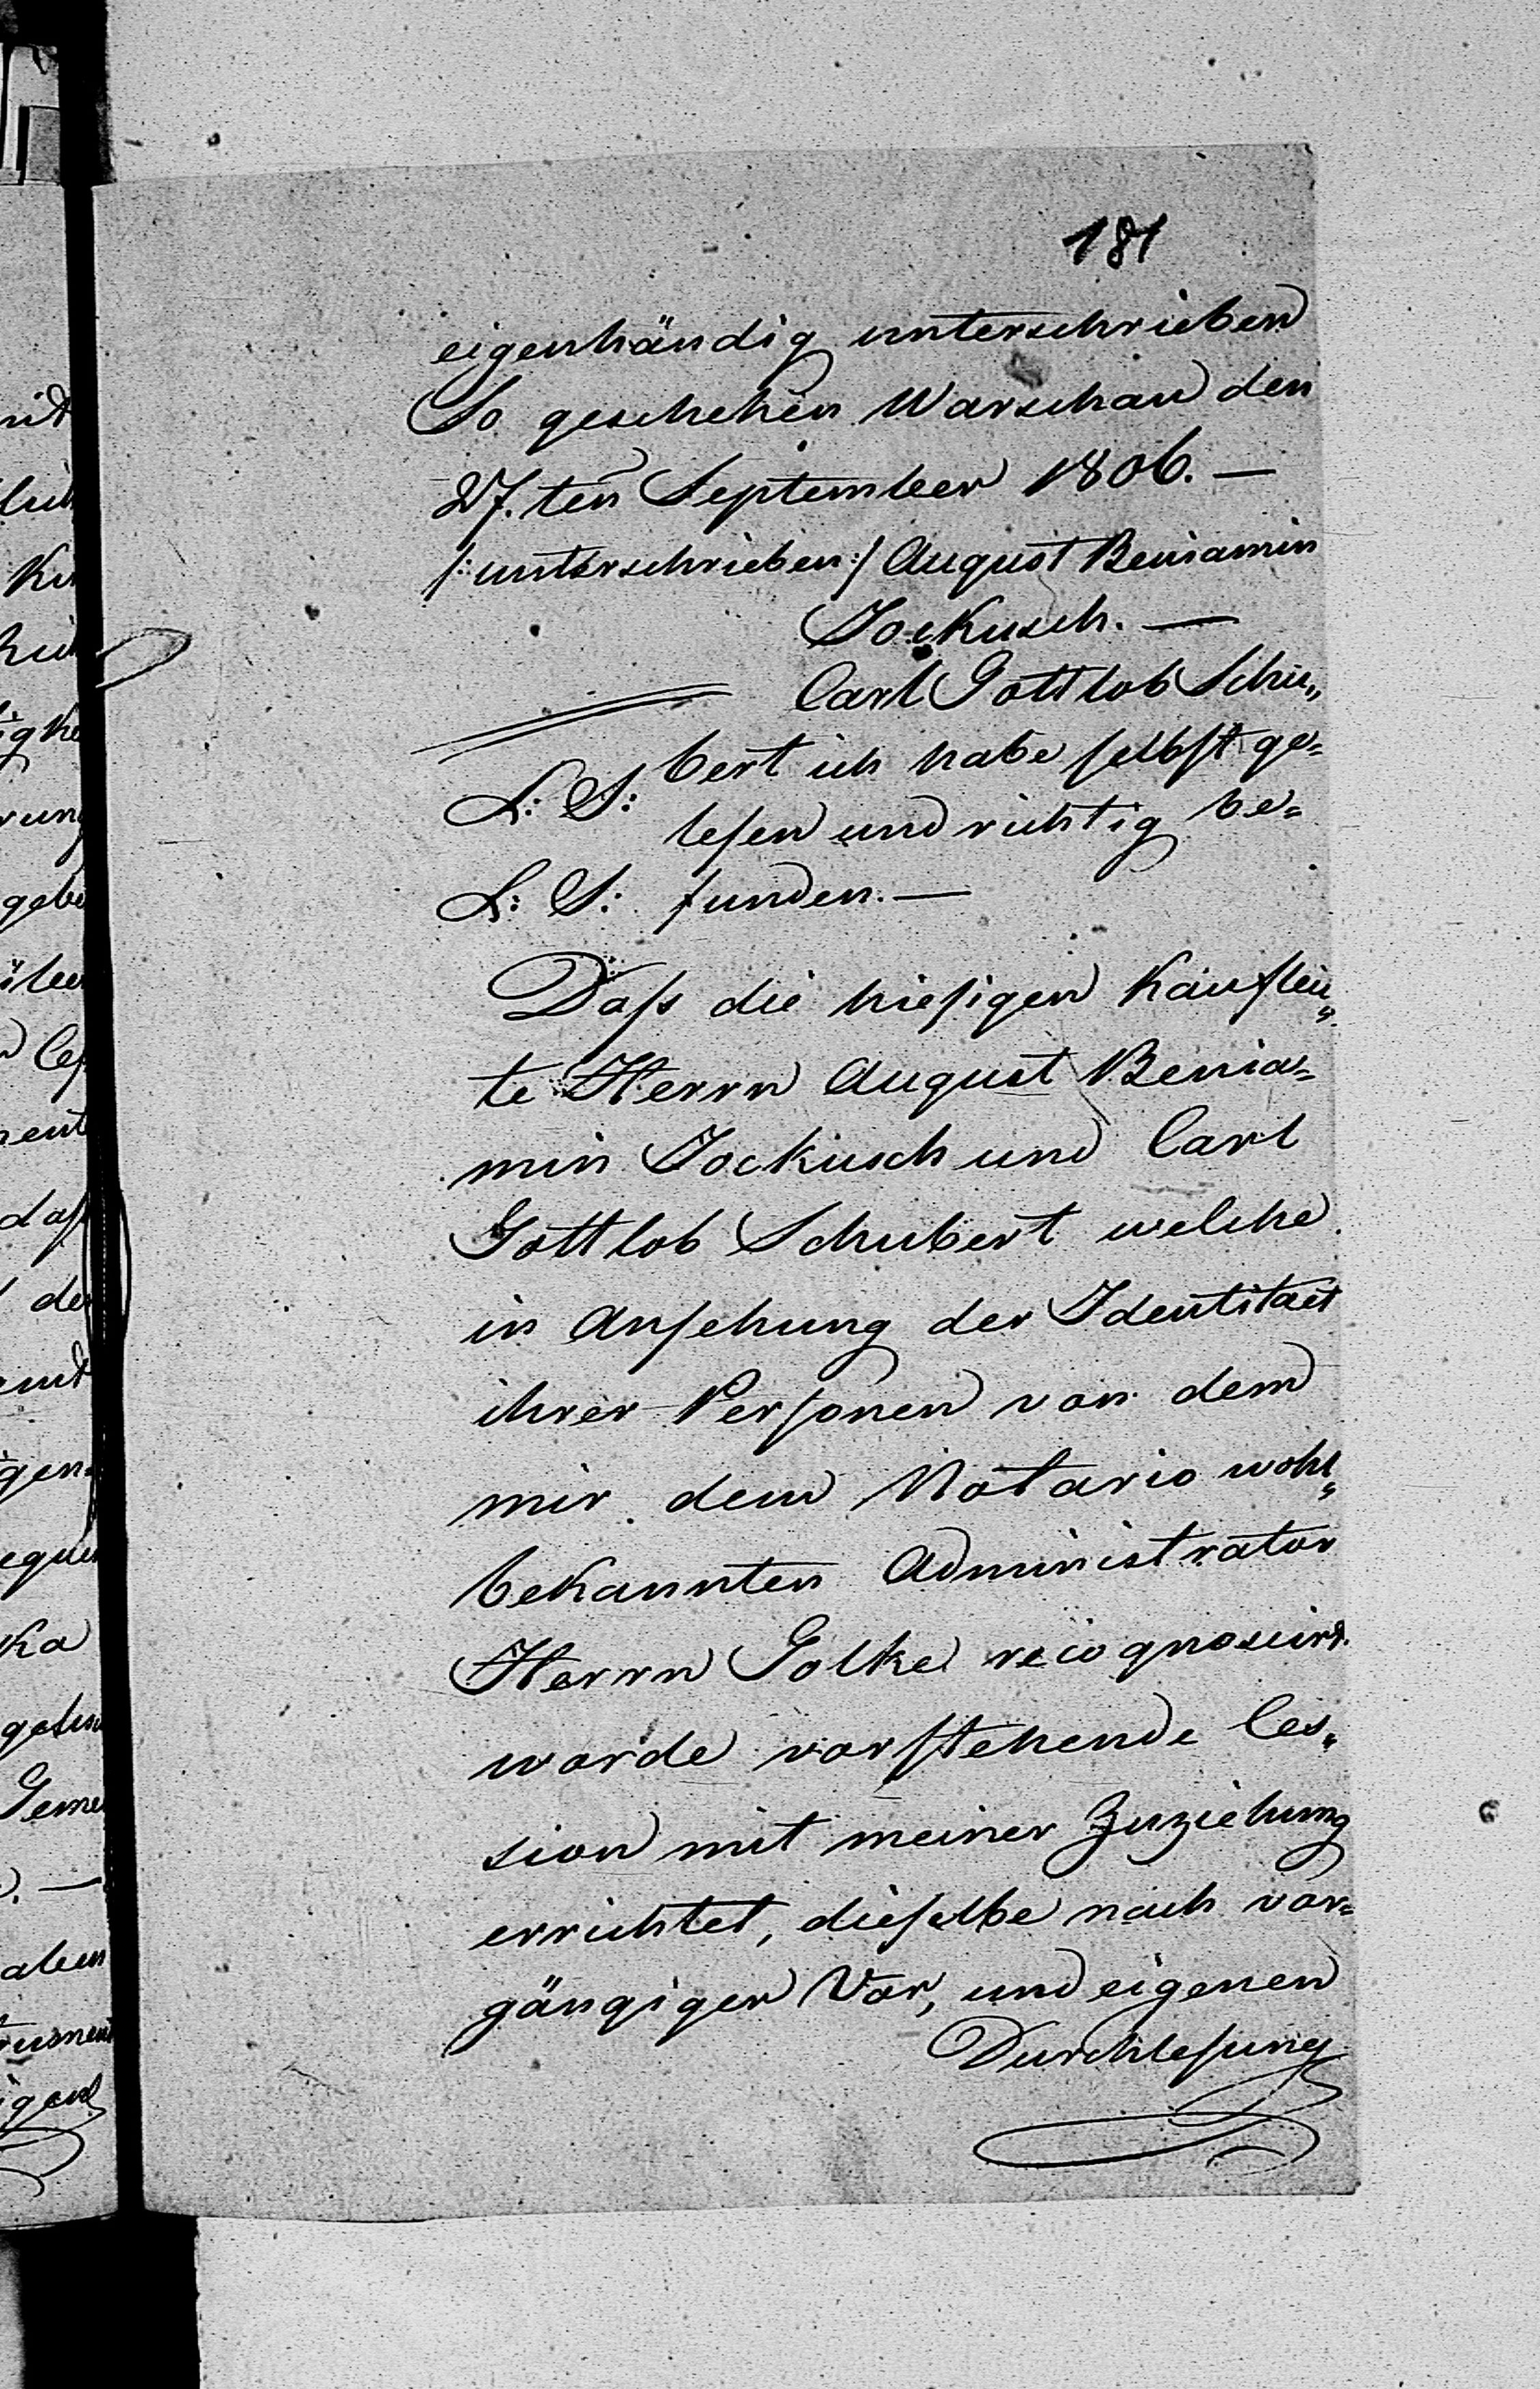 181
eigenhändig unterschrieben
So geschehen Warschau den
27.ten September 1806. —
/: unterschrieben :/ August Beniamin
Jockusch. —
Carl Gottlob Schu„
L: S: bert ich habe selbst ge=
lesen und richtig be=
L: S: funden. —
Daß die hiesigen Kaufleu„
te Herrn August Benia=
min Jockusch und Carl
Gottlob Schubert welche
in Ansehung der Identitaet
ihrer Personen von dem
mir dem Notario wohl„
bekannten Administrator
Herrn Golke recognoscirt
worde vorstehende Ces„
sion mit meiner Zuziehung
errichtet, dieselbe nach vor=
gängiger Vor, und eigenen
Durchlesung